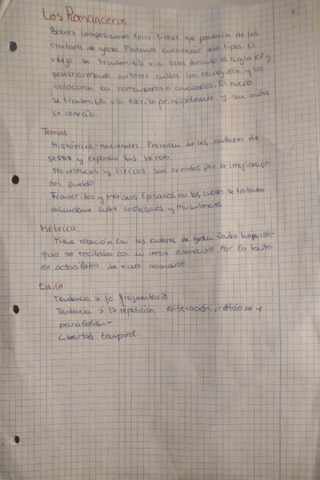 Los Romanceros
Breves composiciones épico-líricas que provienen de los
cantares de gesta. Podemos encontrar dos tipos. El
viejo se transmitía vía oral hasta el siglo XV y
posteriormente autores cultos los recogieron y los
colocaron en romanceros o cancioneros. El nuevo
se transmitía vía escrita principalmente y su autor
se conocía.
Temas
Históricos-nacionales. Proceden de los cantares de
gesta y exponen sus héroes.
Novelescos y líricos: son creados por la imaginación
del pueblo
Fronterizos y moriscos: Episodios en los cuales se
entre castellanos y musulmanes
Métrica
Tiene relación con los cantares de gesta. Cada hemistiquio
se recitaba con su rima asonante. Por lo tanto
es octosílabo de rima asonante.
Tendencia a lo fragmentario
Tendencia a la repetición. Aliteración, y
paralelismo
Libertad temporal